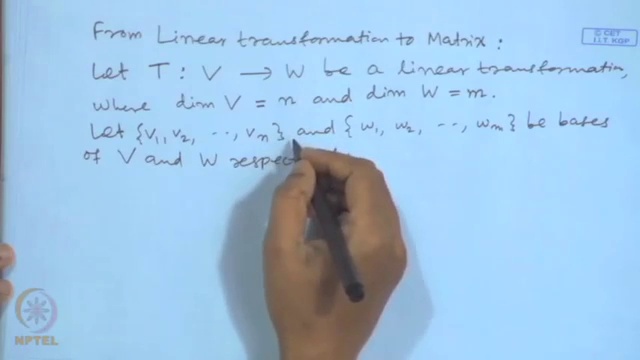 From Linear transformation to Matrix :
© CET
I.I.T. KGP
Let T : V → W be a linear transformation,
where dim V = n and dim W = m.
Let {v₁, v₂, ··, vₙ} and {w₁, w₂, ··, wₘ} be bases
of V and W
NPTEL